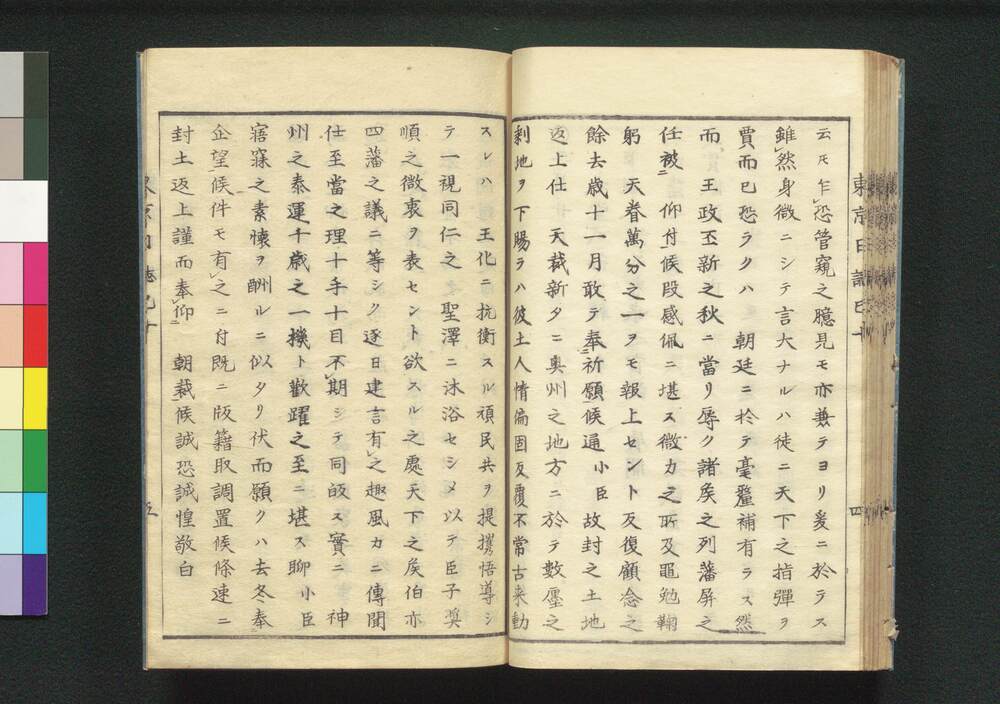 東京日誌巳十
四
云𪜈乍恐管窺之臆見モ亦兼テヨリ爰ニ於ラス
雖然身微ニシテ言大ナルハ徒ニ天下之指彈ヲ
賈而已恐ラクハ 朝廷ニ於テ毫釐補有ラス然
而 王政丕新之秋ニ當リ辱ク諸矦之列藩屏之
任被ニ 仰付一候段感佩ニ堪ス微力之所及黽勉鞠
躬 天眷萬分之一ヲモ報上セント反復顧念之
餘去歳十一月敢テ奉ニ祈願候通小臣故封之土地
返上仕 天裁新タニ奥州之地方ニ於テ数廛之
剰地ヲ下賜ラハ彼土人情偏固反覆不常古来動
スレハ王化ニ抗衡スル頑民共ヲ提攜悟導シ
テ一視同仁之 聖澤ニ沐浴セシメ以テ臣子奨
順之微衷ヲ表セント欲スル之處天下之矦伯亦
四藩之議ニ等シク逐日建言有レ之趣風カニ傳聞
仕至當之理十手十目不レ期シテ同皈ス實ニ 神
州之泰運千歳之一機ト歡躍之至ニ堪ス聊小臣
寤寐之素懐ヲ酬ルニ似タリ伏而願クハ去冬奉ニ
企望一候件モ有レ之ニ付既ニ版籍取調置候條速ニ
封土返上謹而奉レ仰ニ 朝裁一候誠恐誠惶敬白
五